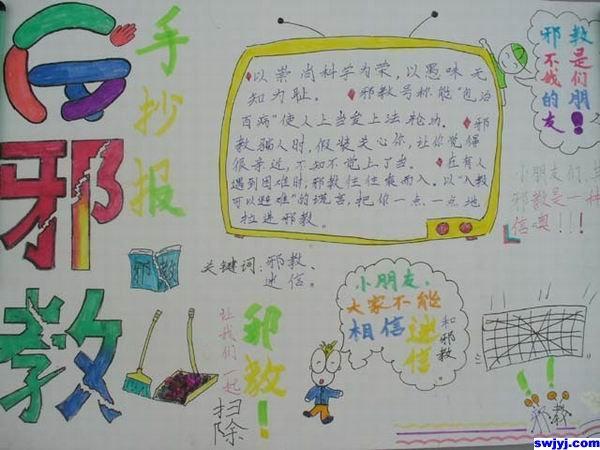 手抄报
邪教
以崇尚科学为荣，以愚昧无
知为耻。邪教号称能“包治
百病”使人上当爱上法轮功。邪
教骗人时，假装关心你，让你觉得
很亲近，不知不觉上了当。在有人
遇到困难时，邪教往往乘而入。以“入教
可以避难”的谎言，把你一点一点地
拉进邪教。
邪教
不是
我们
的朋
友！
小朋友们，
邪教是一种
信奥!!!
关键词：邪教、
迷信。
邪
让我们一起
扫除
邪教！
小朋友，
大家不能
相信迷信
和邪教
!!
邪教
swjyj.com